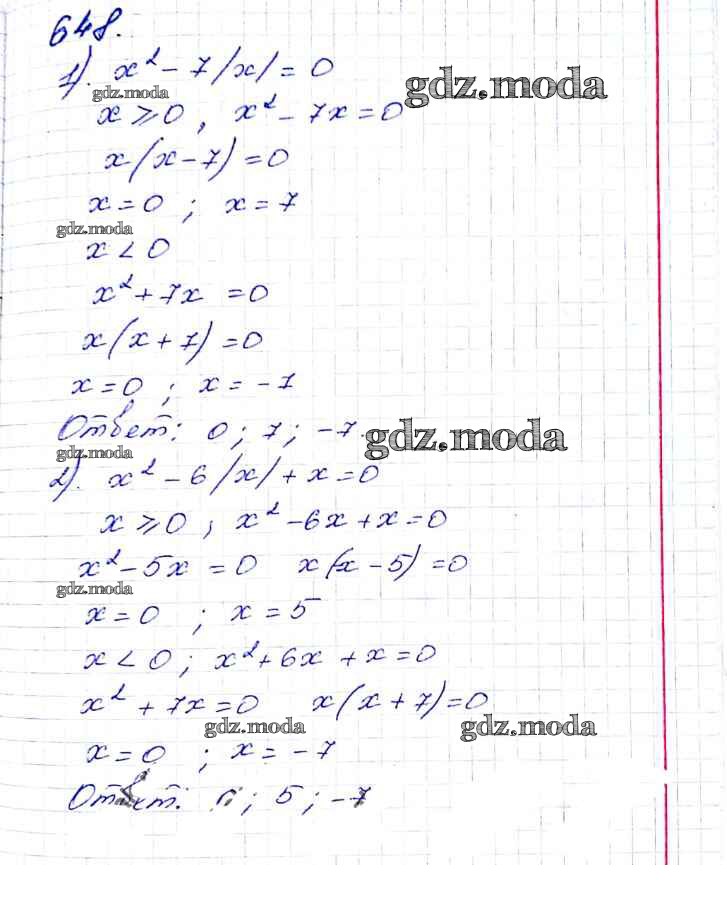 648.
1). x² - 7|x| = 0
gdz.moda
gdz.moda
x ⩾ 0, x² - 7x = 0
x(x - 7) = 0
x = 0 ; x = 7
gdz.moda
x < 0
x² + 7x = 0
x(x + 7) = 0
x = 0 ; x = -7
Ответ: 0; 7; -7.
gdz.moda
gdz.moda
2). x² - 6|x| + x = 0
x ⩾ 0, x² - 6x + x = 0
x² - 5x = 0 x(x - 5) = 0
gdz.moda
x = 0 ; x = 5
x < 0; x² + 6x + x = 0
x² + 7x = 0 x(x + 7) = 0
gdz.moda
gdz.moda
x = 0 ; x = -7
Ответ: ; 5; -7